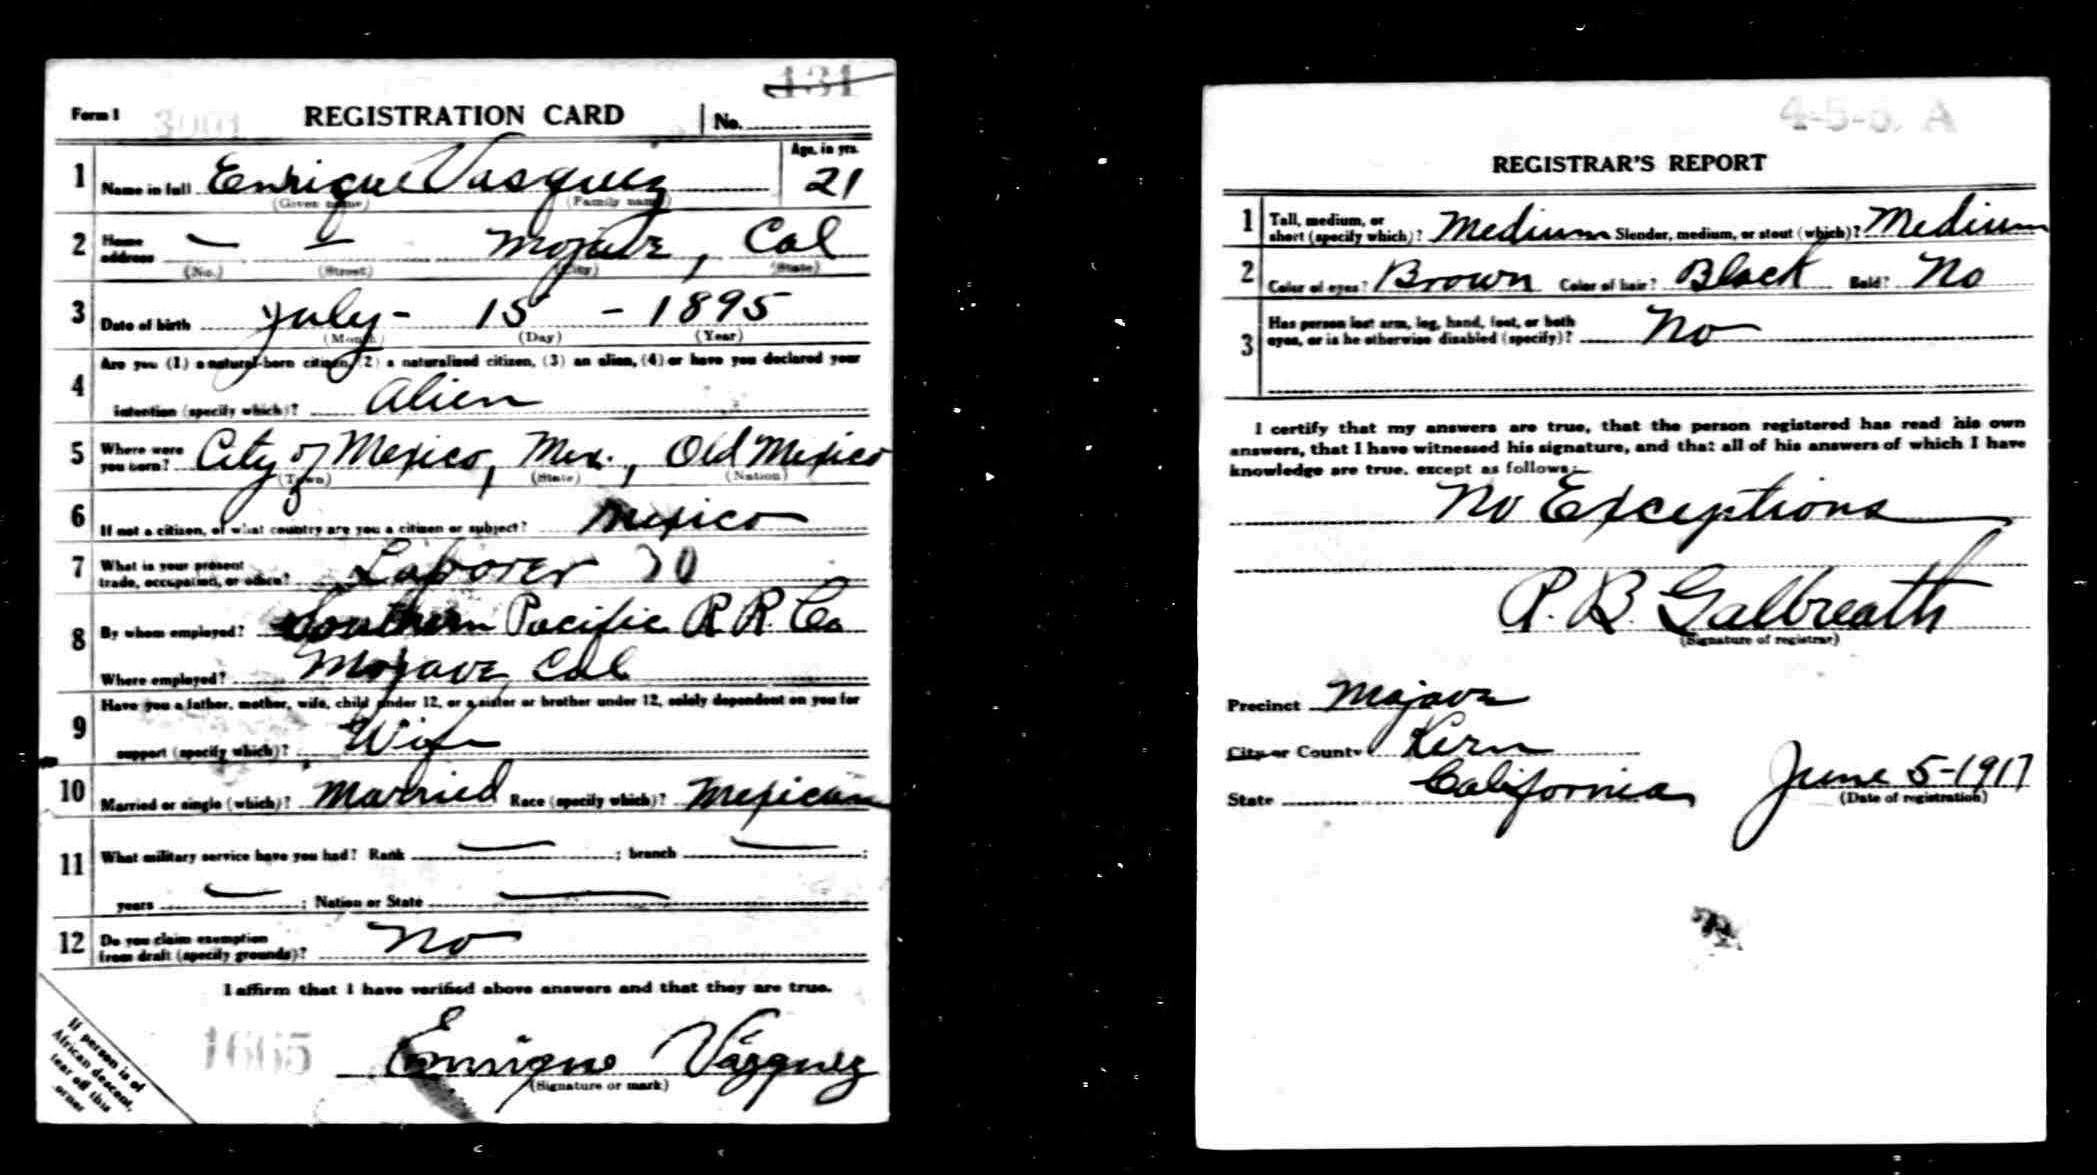 131
Form 1 REGISTRATION CARD No.
1 Name in full Enrique Vasquez Age, in yrs. 21
(Given name) (Family name)
2 Home address — — Mojave, Cal
(No.) (Street) (City) (State)
3 Date of birth July - 15 - 1895
(Month) (Day) (Year)
4 Are you (1) a natural-born citizen, (2) a naturalized citizen, (3) an alien, (4) or have you declared your
intention (specify which)? Alien
5 Where were you born? City of Mexico, Mex., Old Mexico
(Town) (State) (Nation)
6 If not a citizen, of what country are you a citizen or subject? Mexico
7 What is your present
trade, occupation, or office? Laborer
8 By whom employed? Southern Pacific R.R. Co
Where employed? Mojave Cal
9 Have you a father, mother, wife, child under 12, or a sister or brother under 12, solely dependent on you for
support (specify which)? Wife
10 Married or single (which)? Married Race (specify which)? Mexican
11 What military service have you had? Rank — ; branch — ;
years — ; Nation or State —
12 Do you claim exemption
from draft (specify grounds)? No
I affirm that I have verified above answers and that they are true.
1665
Enrique Vázquez
(Signature or mark)
If person is of
African descent,
tear off this
corner
4-5-5. A
REGISTRAR'S REPORT
1 Tall, medium, or
short (specify which)? Medium Slender, medium, or stout (which)? Medium
2 Color of eyes? Brown Color of hair? Black Bald? No
3 Has person lost arm, leg, hand, foot, or both
eyes, or is he otherwise disabled (specify)? No
I certify that my answers are true, that the person registered has read his own
answers, that I have witnessed his signature, and that all of his answers of which I have
knowledge are true, except as follows:
No Exceptions
P. B. Galbreath
(Signature of registrar)
Precinct Mojave
City or County Kern
State California June 5-1917
(Date of registration)